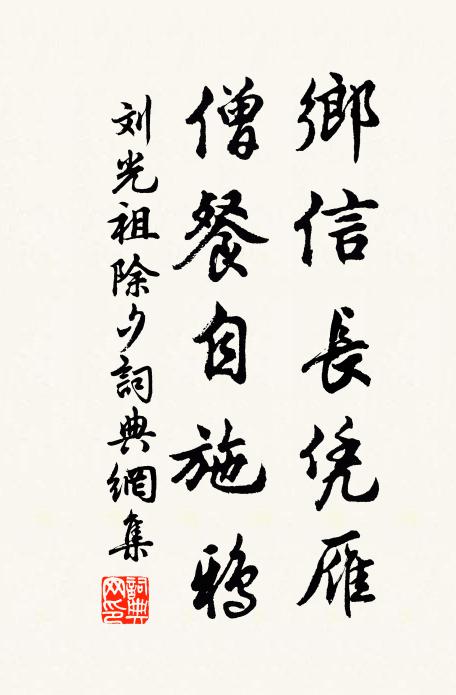 鄉信長凭雁
僧餐自施鴉
刘光祖除夕詞典網集
詞典網印